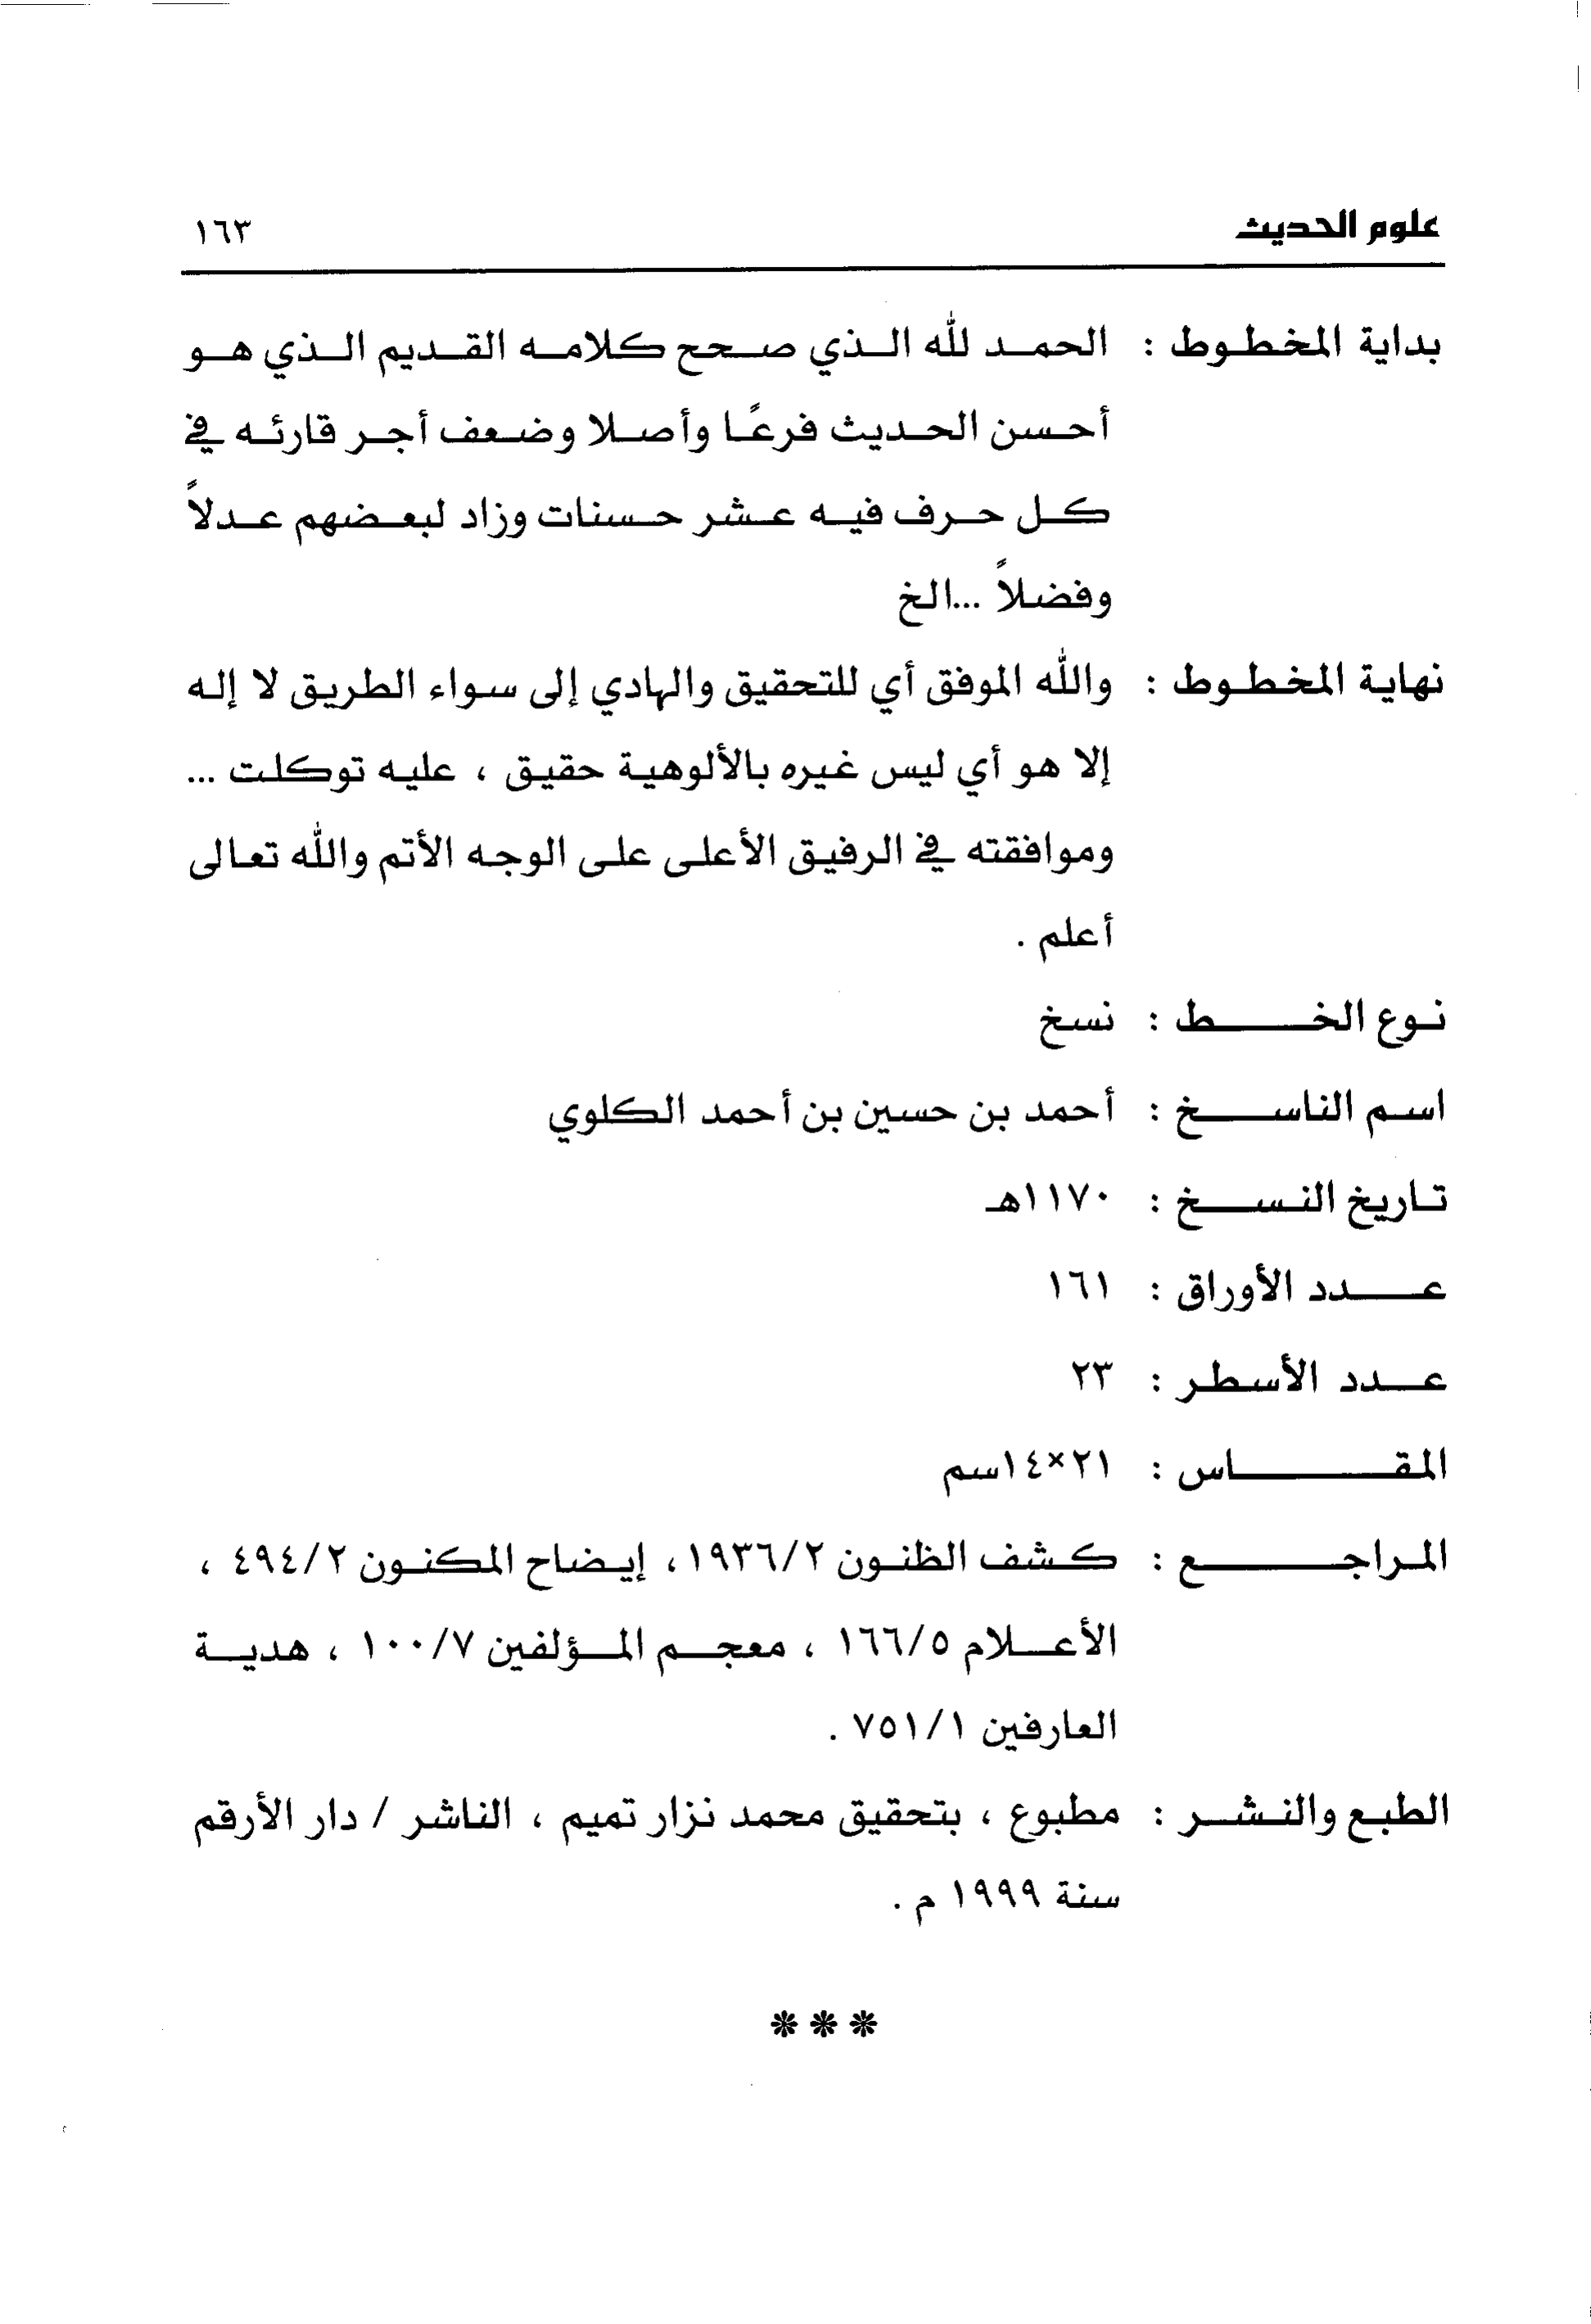 علوم الحديث ١٦٣
بداية المخطوط : الحمد لله الذي صحح كلامه القديم الذي هو
أحسن الحديث فرعًا وأصلا وضعف أجر قارئه في
كل حرف فيه عشر حسنات وزاد لبعضهم عدلاً
وفضلاً ...الخ
نهاية المخطوط : والله الموفق أي للتحقيق والهادي إلى سواء الطريق لا إله
إلا هو أي ليس غيره بالألوهية حقيق ، عليه توكلت ...
وموافقته في الرفيق الأعلى على الوجه الأتم والله تعالى
أعلم .
نوع الخط : نسخ
اسم الناسخ : أحمد بن حسين بن أحمد الكلوي
تاريخ النسخ : ١١٧٠هـ
عدد الأوراق : ١٦١
عدد الأسطر : ٢٣
المقاس : ٢١×١٤سم
المراجع : كشف الظنون ١٩٣٦/٢، إيضاح المكنون ٤٩٤/٢ ،
الأعلام ١٦٦/٥ ، معجم المؤلفين ١٠٠/٧ ، هدية
العارفين ٧٥١/١ .
الطبع والنشر : مطبوع ، بتحقيق محمد نزار تميم ، الناشر / دار الأرقم
سنة ١٩٩٩ م .
***